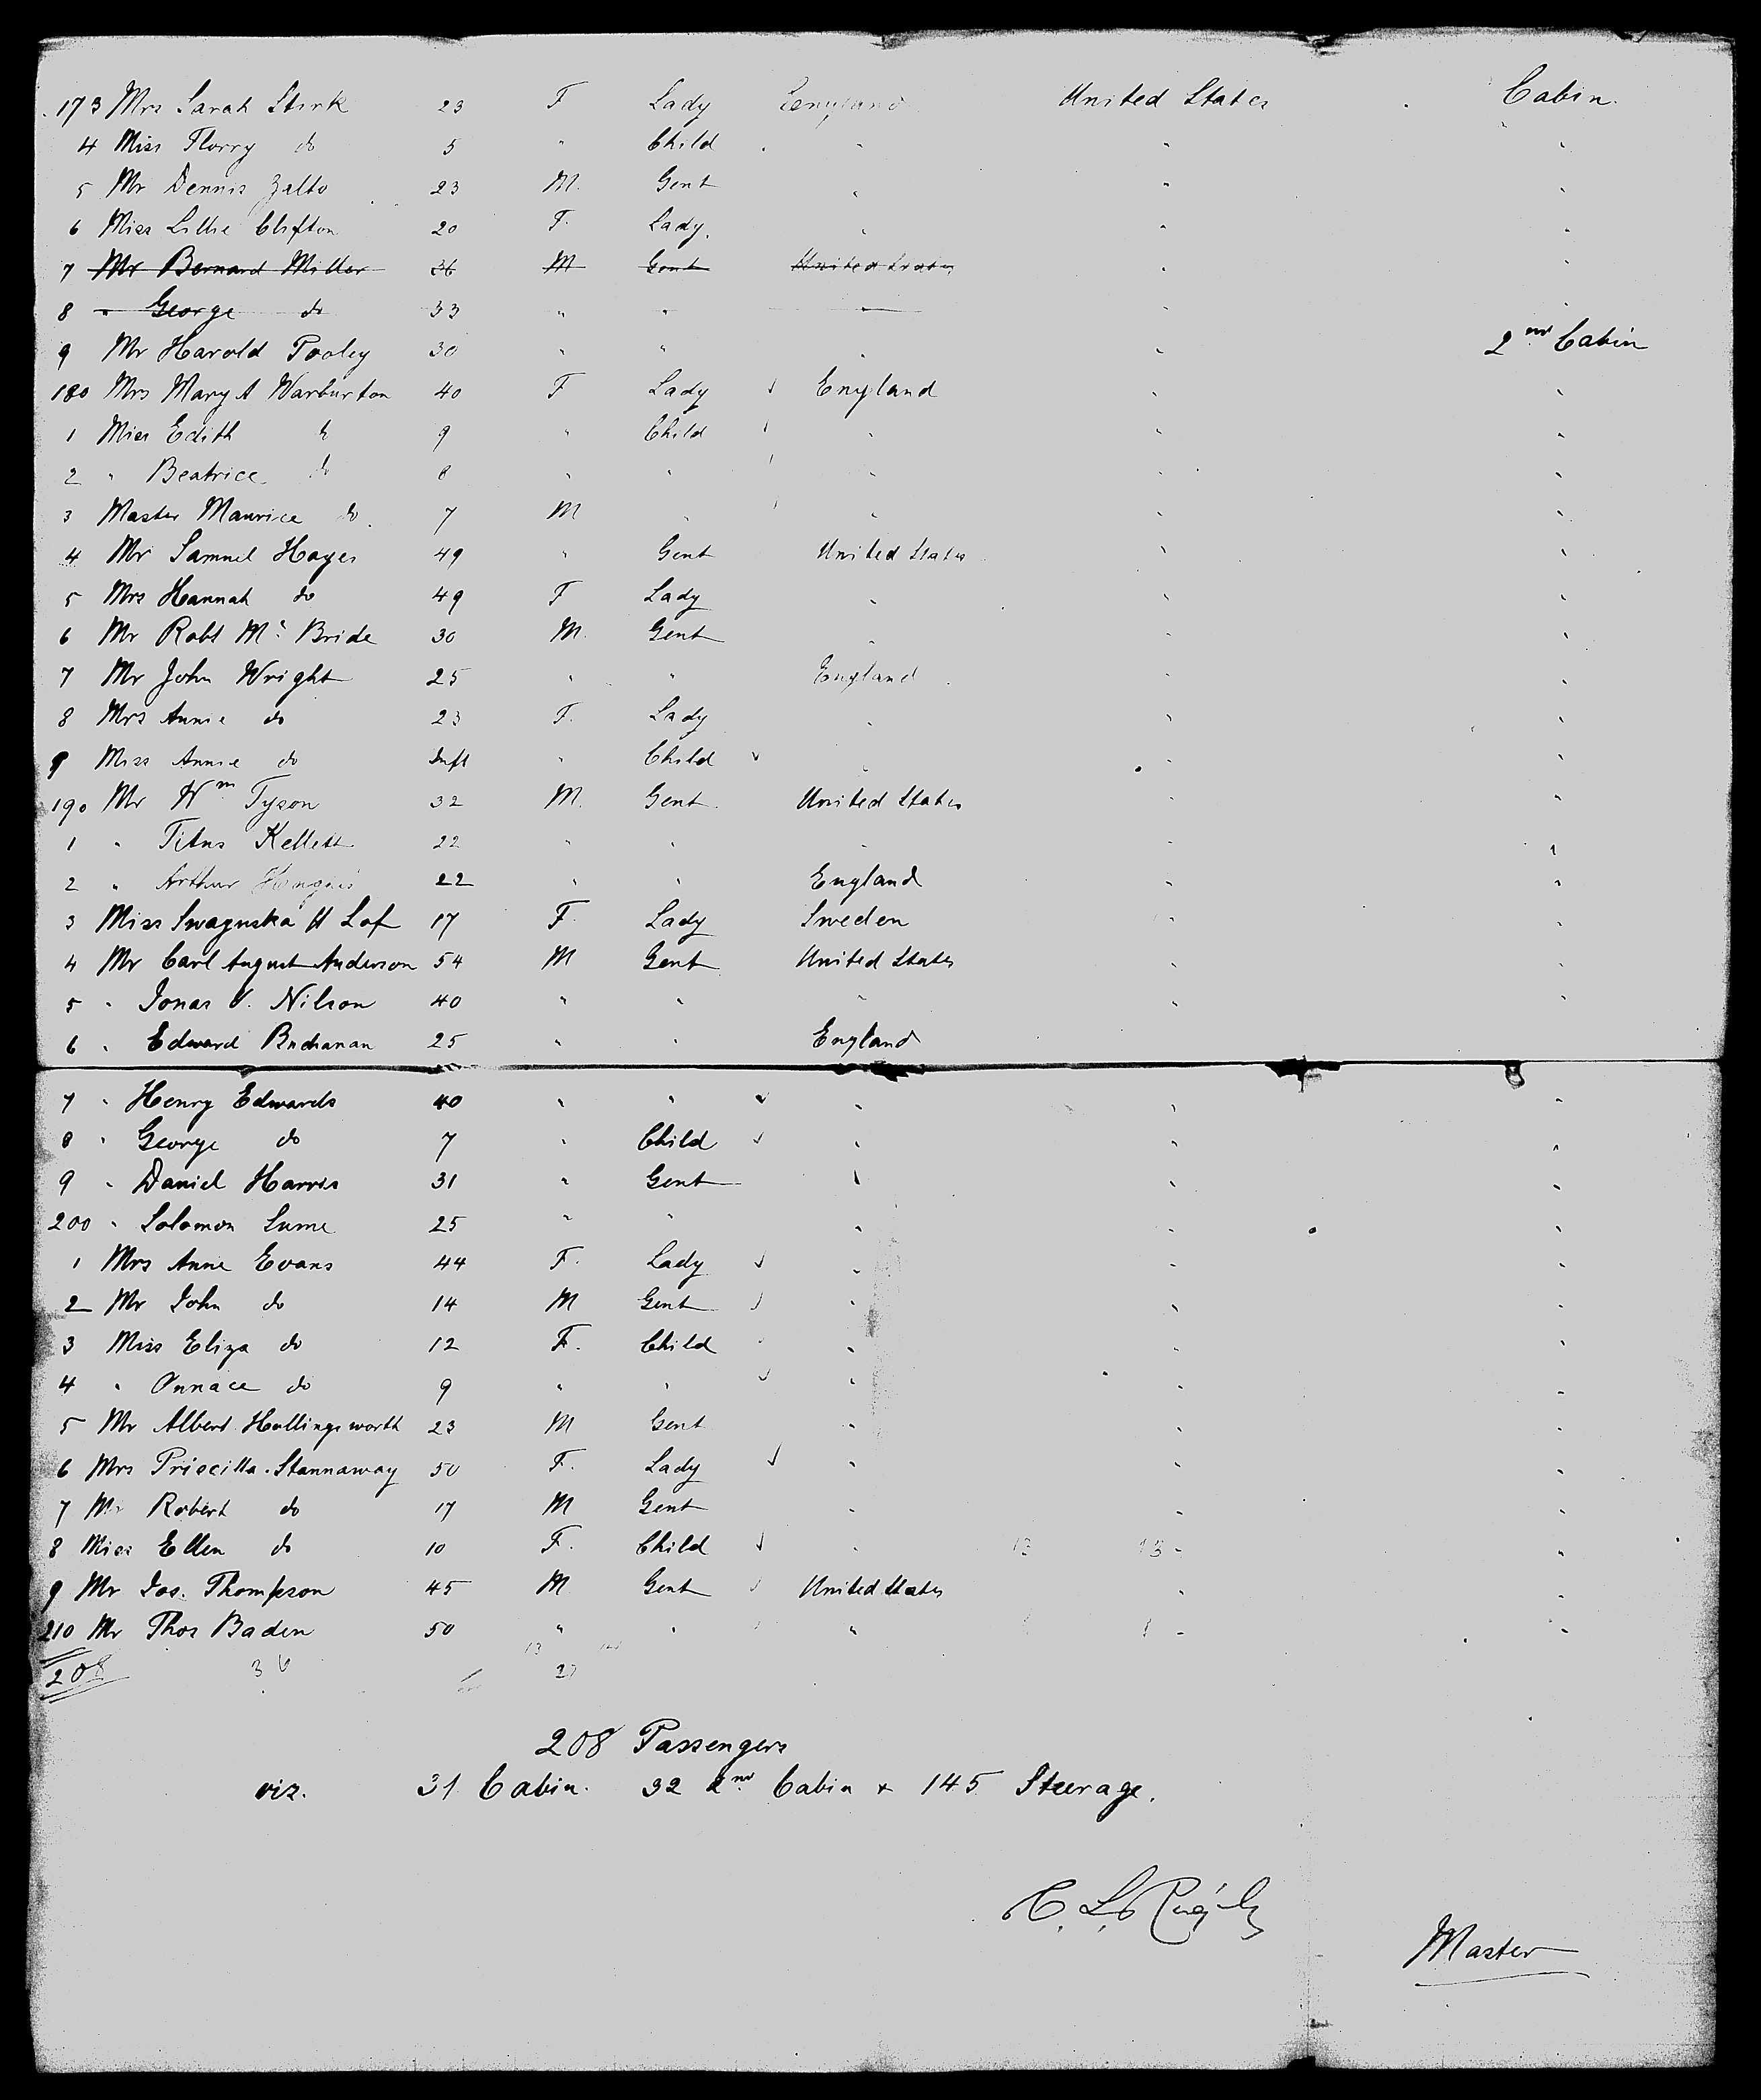 173 Mrs Sarah Stirk 23 F Lady England United States Cabin.
4 Miss Florry do 5 " Child " " "
5 Mr Dennis Zalto 23 M. Gent " " "
6 Miss Lillie Clifton 20 F. Lady. " " "
7 Mr Bernard Miller 36 M Gent United States " "
8 " George do 33 " " " "
9 Mr Harold Pooley 30 " " " " 2nd Cabin
180 Mrs Mary A Warburton 40 F Lady England " "
1 Miss Edith do 9 " Child " " "
2 " Beatrice do 8 " " " " "
3 Master Maurice do 7 M " " " "
4 Mr Samuel Hayes 49 " Gent United States " "
5 Mrs Hannah do 49 F Lady " " "
6 Mr Robt Mc Bride 30 M. Gent " " "
7 Mr John Wright 25 " " England " "
8 Mrs Annie do 23 F. Lady " " "
9 Miss Annie do Inft " Child " " "
190 Mr Wm Tyson 32 M. Gent United States " "
1 " Titus Kellett 22 " " " " "
2 " Arthur 22 " " England " "
3 Miss Swaguska H Lof 17 F. Lady Sweden " "
4 Mr Carl August Anderson 54 M Gent United States " "
5 " Jonas V. Nilson 40 " " " " "
6 " Edward Buchanan 25 " " England
7 " Henry Edwards 40 " " " " "
8 " George do 7 " Child " " "
9 " Daniel Harris 31 " Gent " " "
200 " Solomon Lume 25 " " " " "
1 Mrs Anne Evans 44 F. Lady " " "
2 Mr John do 14 M Gent " " "
3 Miss Eliza do 12 F. Child " " "
4 " do 9 " " " " "
5 Mr Albert Hollingsworth 23 M Gent " " "
6 Mrs Priscilla Stannaway 50 F. Lady " " "
7 Mr Robert do 17 M Gent " " "
8 Miss Ellen do 10 F. Child " 13 13 " "
9 Mr Jos. Thompson 45 M Gent United States " "
210 Mr Thos Baden 50 " " " " "
208
208 Passengers
viz. 31 Cabin. 32 2nd Cabin + 145 Steerage.
C. L.
Master